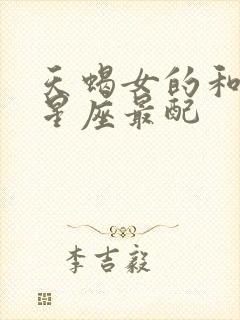 天蝎女的和
星座最配
李吉毅